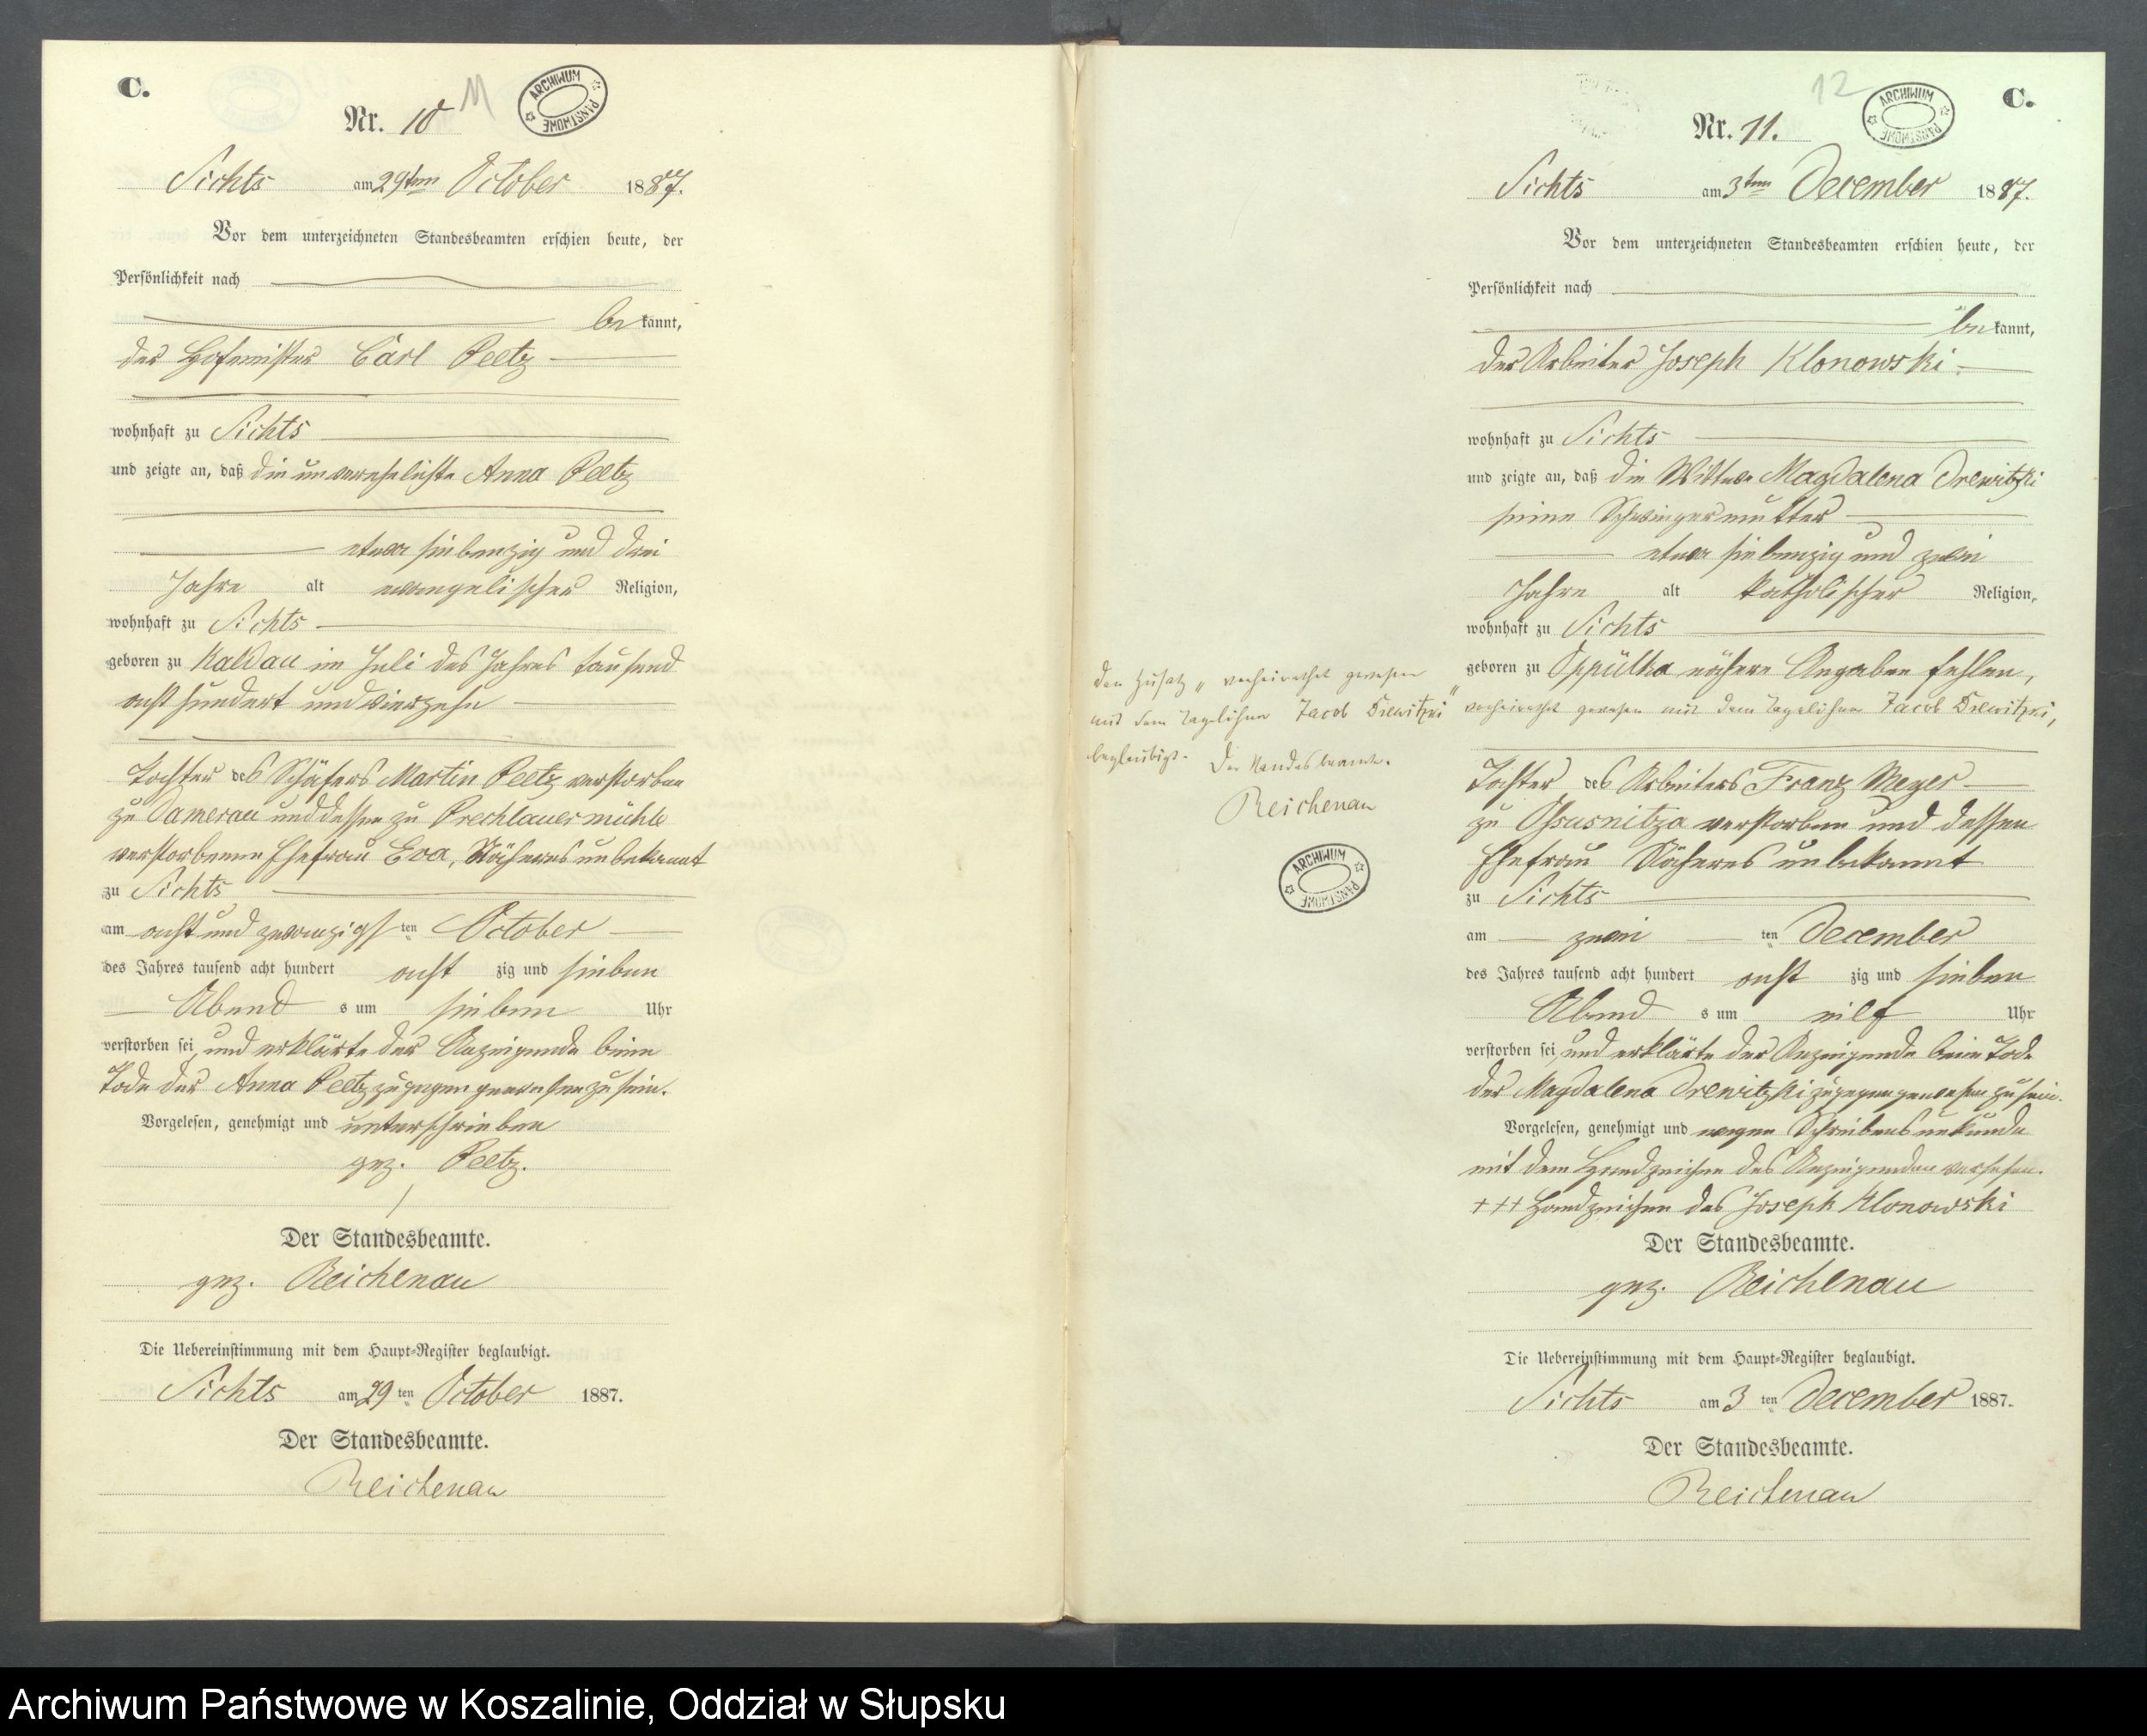 C.
Nr. 10
11
ARCHIWUM PAŃSTWOWE
Sichts am 29ten October 1887.
Vor dem unterzeichneten Standesbeamten erschien heute, der
Persönlichkeit nach
be kannt,
der Hofmeister Carl Peetz
wohnhaft zu Sichts
und zeigte an, daß die unverehelichte Anna Peetz
etwa siebenzig und drei
Jahre alt evangelischer Religion,
wohnhaft zu Sichts
geboren zu Kaldau im Juli des Jahres tausend
acht hundert und vierzehn
Tochter des Schäfers Martin Peetz verstorben
zu Damerau und dessen zu Prechlauermühle
verstorbenen Ehefrau Eva, Näheres unbekannt
zu Sichts
am acht und zwanzigsten October
des Jahres tausend acht hundert acht zig und sieben
Abend s um sieben Uhr
verstorben sei, und erklärte der Anzeigende beim
Tode der Anna Peetz zugegen gewesen zu sein.
Vorgelesen, genehmigt und unterschrieben
gez. Peetz.
Der Standesbeamte.
gez. Reichenau
Die Uebereinstimmung mit dem Haupt-Register beglaubigt.
Sichts am 29 ten October 1887.
Der Standesbeamte.
Reichenau
C.
12
Nr. 11.
ARCHIWUM PAŃSTWOWE
Sichts am 3ten December 1887.
Vor dem unterzeichneten Standesbeamten erschien heute, der
Persönlichkeit nach
be kannt,
der Arbeiter Joseph Klonowski.
wohnhaft zu Sichts
und zeigte an, daß die Wittwe Magdalena Drewitzki
seine Schwiegermutter
etwa siebenzig und zwei
Jahre alt katholischer Religion,
wohnhaft zu Sichts
geboren zu nähere Angaben fehlen,
verheirathet gewesen mit dem Tagelöhner Jacob Drewitzki,
Tochter des Arbeiters Franz Meyer
zu Ossusnitza verstorben und dessen
Ehefrau Näheres unbekannt
zu Sichts
am zwei ten December
des Jahres tausend acht hundert acht zig und sieben
Abend s um elf Uhr
verstorben sei, und erklärte der Anzeigende beim Tode
der Magdalena Drewitzki zugegen gewesen zu sein.
Vorgelesen, genehmigt und wegen Schreibensunkunde
mit dem Handzeichen des Anzeigenden versehen.
+++ Handzeichen des Joseph Klonowski
Der Standesbeamte.
gez. Reichenau
Die Uebereinstimmung mit dem Haupt-Register beglaubigt.
Sichts am 3 ten December 1887.
Der Standesbeamte.
Reichenau
Den Zusatz „verheirathet gewesen
mit dem Tagelöhner Jacob Drewitzki"
beglaubigt. Der Standesbeamte.
Reichenau
ARCHIWUM PAŃSTWOWE
Archiwum Państwowe w Koszalinie, Oddział w Słupsku